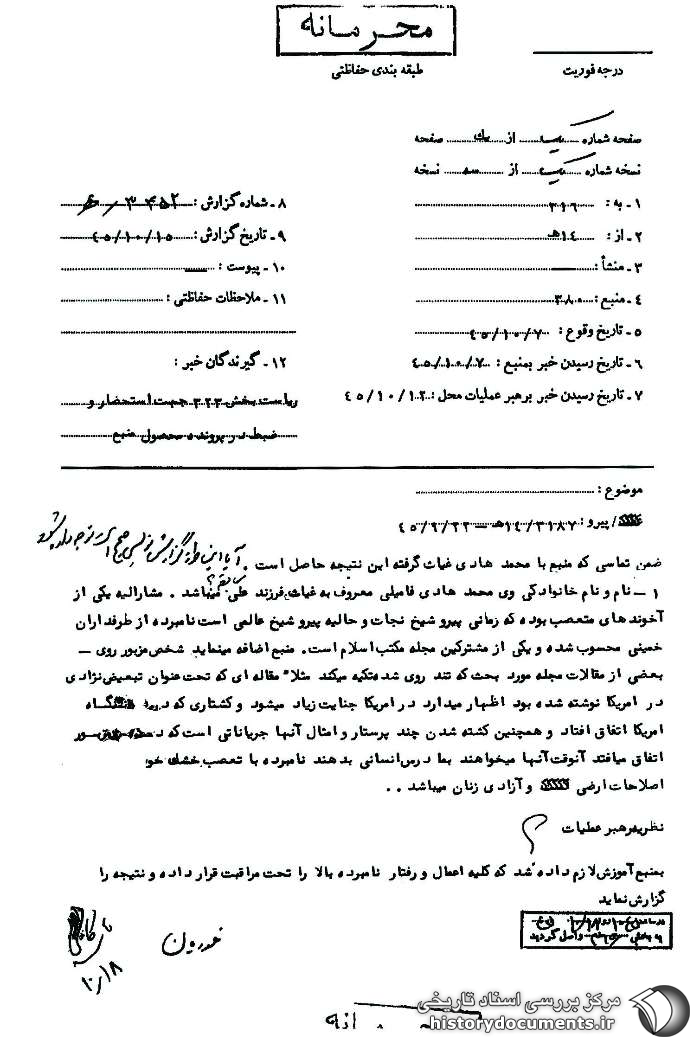 محرمانه
طبقه بندی حفاظتی
درجه فوریت
صفحه شماره یک از یک صفحه
نسخه شماره یک از سه نسخه
۱ - به : ۳۱۶
۲ - از : ۱۴ه
۳ - منشأ :
۴ - منبع : ۳۸۰
۵ - تاریخ وقوع : ۴۵/۱۰/۷
۶ - تاریخ رسیدن خبر بمنبع : ۴۵/۱۰/۷
۷ - تاریخ رسیدن خبر برهبر عملیات محل : ۴۵/۱۰/۱۲
۸ - شماره گزارش :
۹ - تاریخ گزارش : ۴۵/۱۰/۱۵
۱۰ - پیوست :
۱۱ - ملاحظات حفاظتی :
۱۲ - گیرندگان خبر :
ریاست بخش ۳۲۳ جهت استحضار و
ضبط در پرونده محصول منبع
موضوع :
/ پیرو : ۱۴/۳۱۸۷ه - ۴۵/۹/۲۲
ضمن تماسی که منبع با محمد هادی غیاث گرفته این نتیجه حاصل است .
۱ - نام و نام خانوادگی وی محمد هادی فامیلی معروف به غیاث فرزند علی میباشد . مشارالیه یکی از
آخوندهای متعصب بوده که زمانی پیرو شیخ نجات و حالیه پیرو شیخ عالمی است نامبرده از طرفداران
خمینی محسوب شده و یکی از مشترکین مجله مکتب اسلام است. منبع اضافه مینماید شخص مزبور روی -
بعضی از مقالات مجله مورد بحث که تند روی شده تکیه میکند مثلا" مقاله ای که تحت عنوان تبعیض نژادی
در امریکا نوشته شده بود اظهار میدارد در امریکا جنایت زیاد میشود و کشتاری که در
امریکا اتفاق افتاد و همچنین کشته شدن چند پرستار و امثال آنها جریاناتی است که در
اتفاق میافتد آنوقت آنها میخواهند بما درس انسانی بدهند نامبرده با تعصب خشک خود
اصلاحات ارضی و آزادی زنان میباشد . .
نظریه رهبر عملیات
بمنبع آموزش لازم داده شد که کلیه اعمال و رفتار نامبرده بالا را تحت مراقبت قرار داده و نتیجه را
گزارش نماید
واصل گردید
۱۰/۱۸
مرکز بررسی اسناد تاریخی
historydocuments.ir